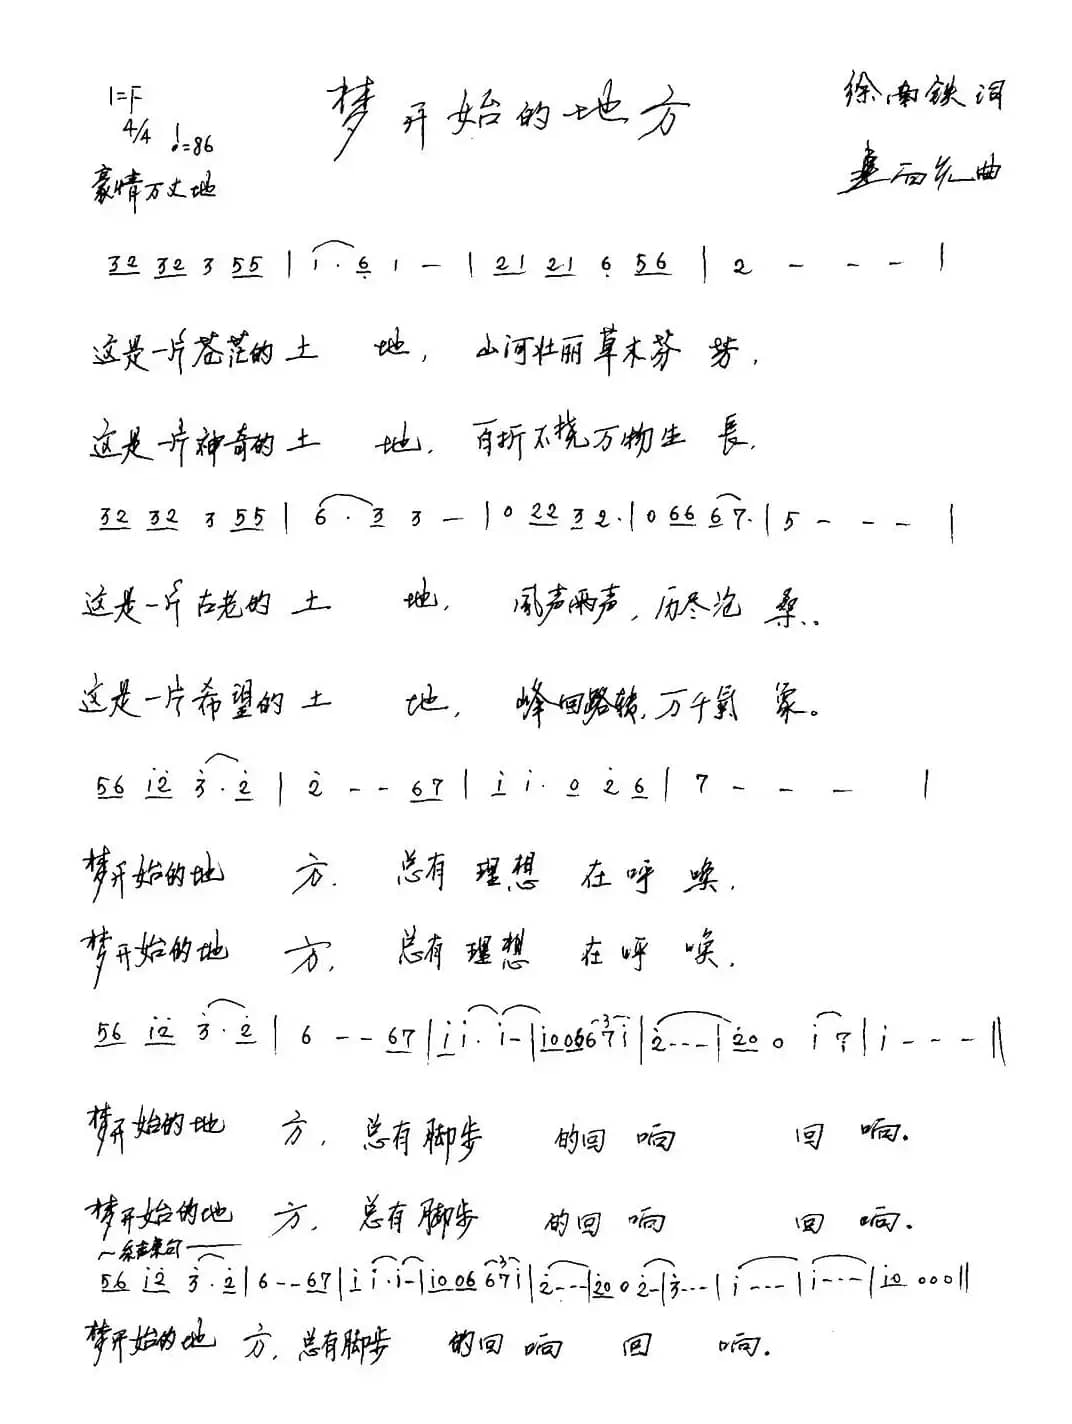 1=F
梦开始的地方
徐南铁 词
4/4 ♩=86
豪情万丈地
曲
32 32 3 55 | i · 6 1 — | 21 21 6 56 | 2 - - - |
这是一片苍茫的土 地，山河壮丽草木芬 芳，
这是一片神奇的土 地，百折不挠万物生 長，
32 32 3 55 | 6 · 3 3 — | 0 22 3 2· | 0 66 6 7· | 5 - - - |
这是一片古老的土 地，风声雨声，历尽沧 桑..
这是一片希望的土 地，峰回路转，万千氣 象。
56 i2 3 · 2 | 2 - - 67 | i i · 0 2 6 | 7 - - - |
梦开始的地 方，总有理想 在呼 唤，
梦开始的地 方，总有理想 在呼 唤，
56 i2 3 · 2 | 6 - - 67 | i i · i - | i00667i | 2 - - - | 20 0 i 7 | i - - - ||
梦开始的地 方，总有脚步 的回 响 回 响.
梦开始的地 方，总有脚步 的回 响 回 响.
~结束句——
56 i2 3 · 2 | 6 - - 67 | i i · i - | i006 67i | 2 - - - | 20 0 2 - | 3 - - - | i - - - | i - - - | i0 000 ||
梦开始的地 方，总有脚步 的回 响 回 响.